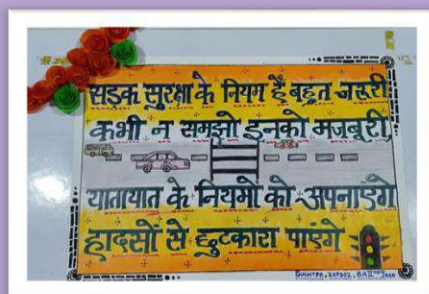 सड़क सुरक्षा के नियम है बहुत जरूरी
कभी न समझो इनको मजबूरी
यातायात के नियमो को अपनाएंगे
हादसों से छुटकारा पाएंगे